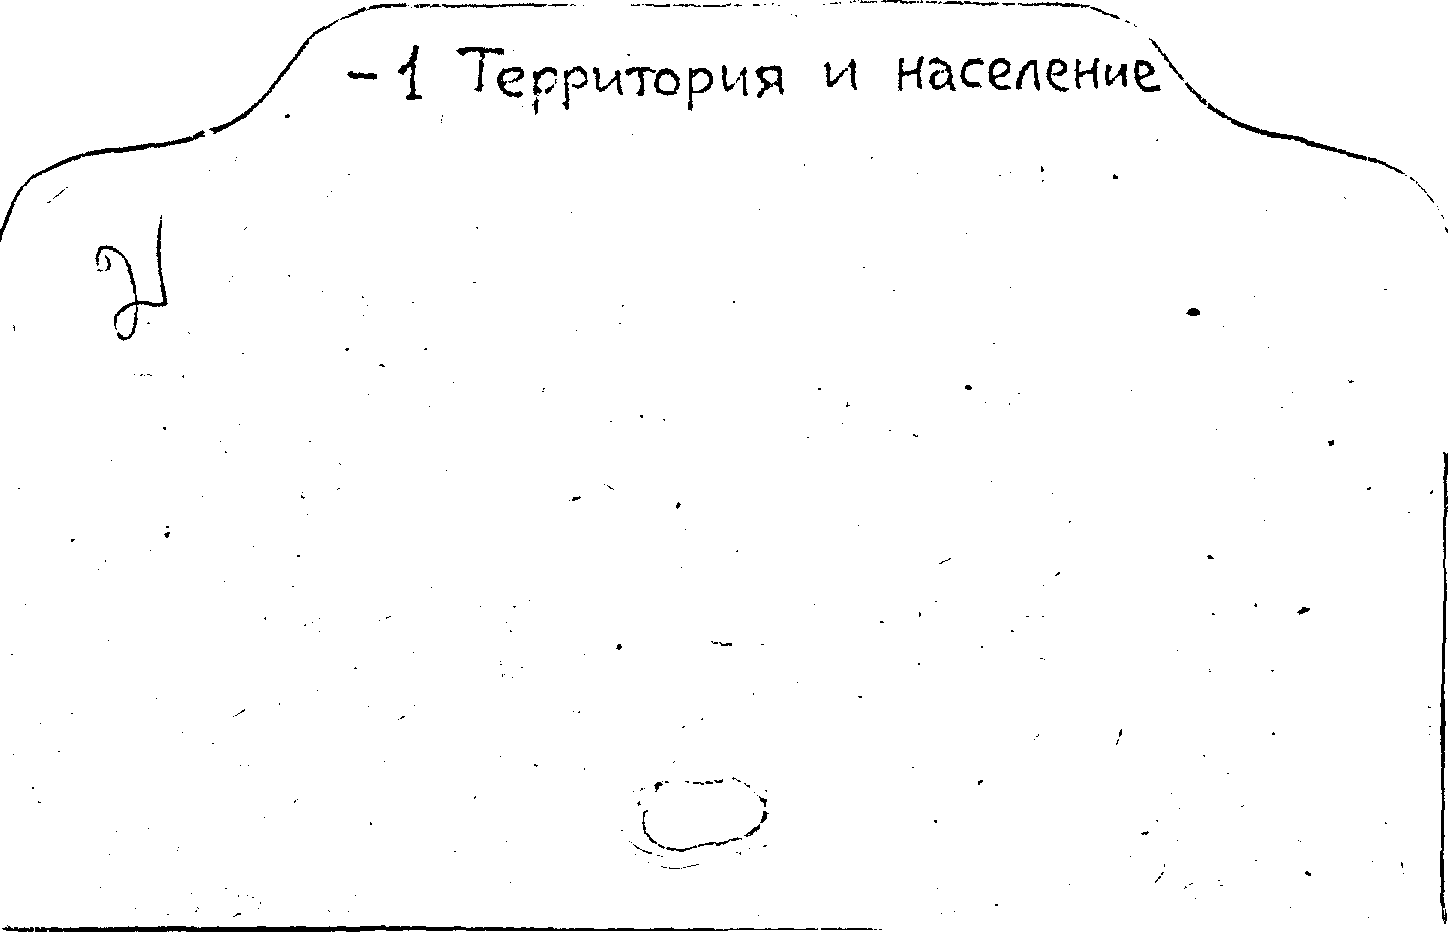 -1 Территория и население